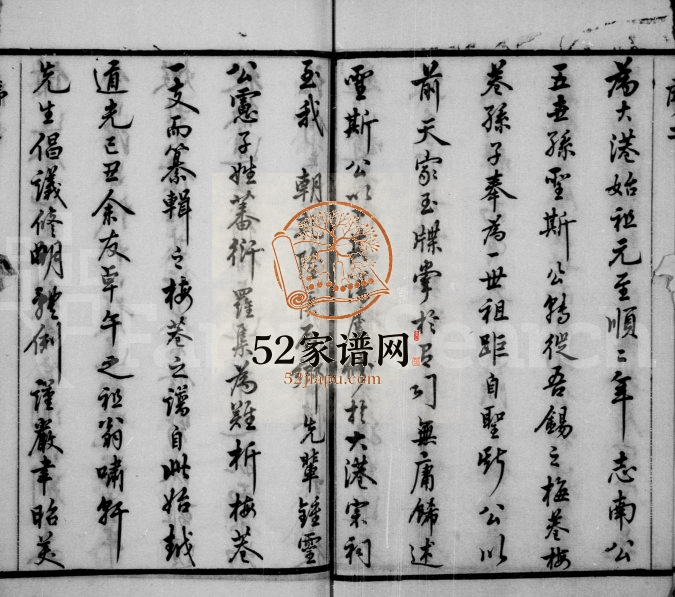 序二
為大港始祖元至順二年志南公
五世孫聖斯公轉從吾錫之梅菴梅
菴孫子奉為一世祖距自聖斯公以
前天家玉牒掌於有司無庸餙述
聖斯公以 大港宗祠
至我 朝 先輩鍾靈
公憲子姓蕃衍羅集為難析梅菴
一支而纂輯之梅菴之譜自此始越
道光己丑余友卓午之祖翁嘯軒
先生倡議修明體例謹嚴幸昭美
52家谱网
52jiapu.com